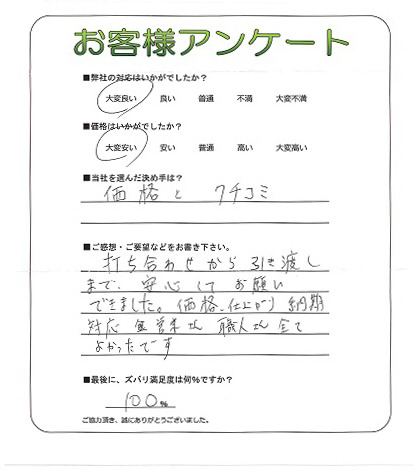 お客様アンケート
■弊社の対応はいかがでしたか?
大変良い 良い 普通 不満 大変不満
■価格はいかがでしたか?
大変安い 安い 普通 高い 大変高い
■当社を選んだ決め手は?
価格と クチコミ
■ご感想・ご要望などをお書き下さい。
打ち合わせから引き渡し
まで、安心してお願い
できました。価格、仕上がり 納期
対応 営業さん 職人さん全て
よかったです
■最後に、ズバリ満足度は何%ですか?
100%
ご協力頂き、誠にありがとうございました。